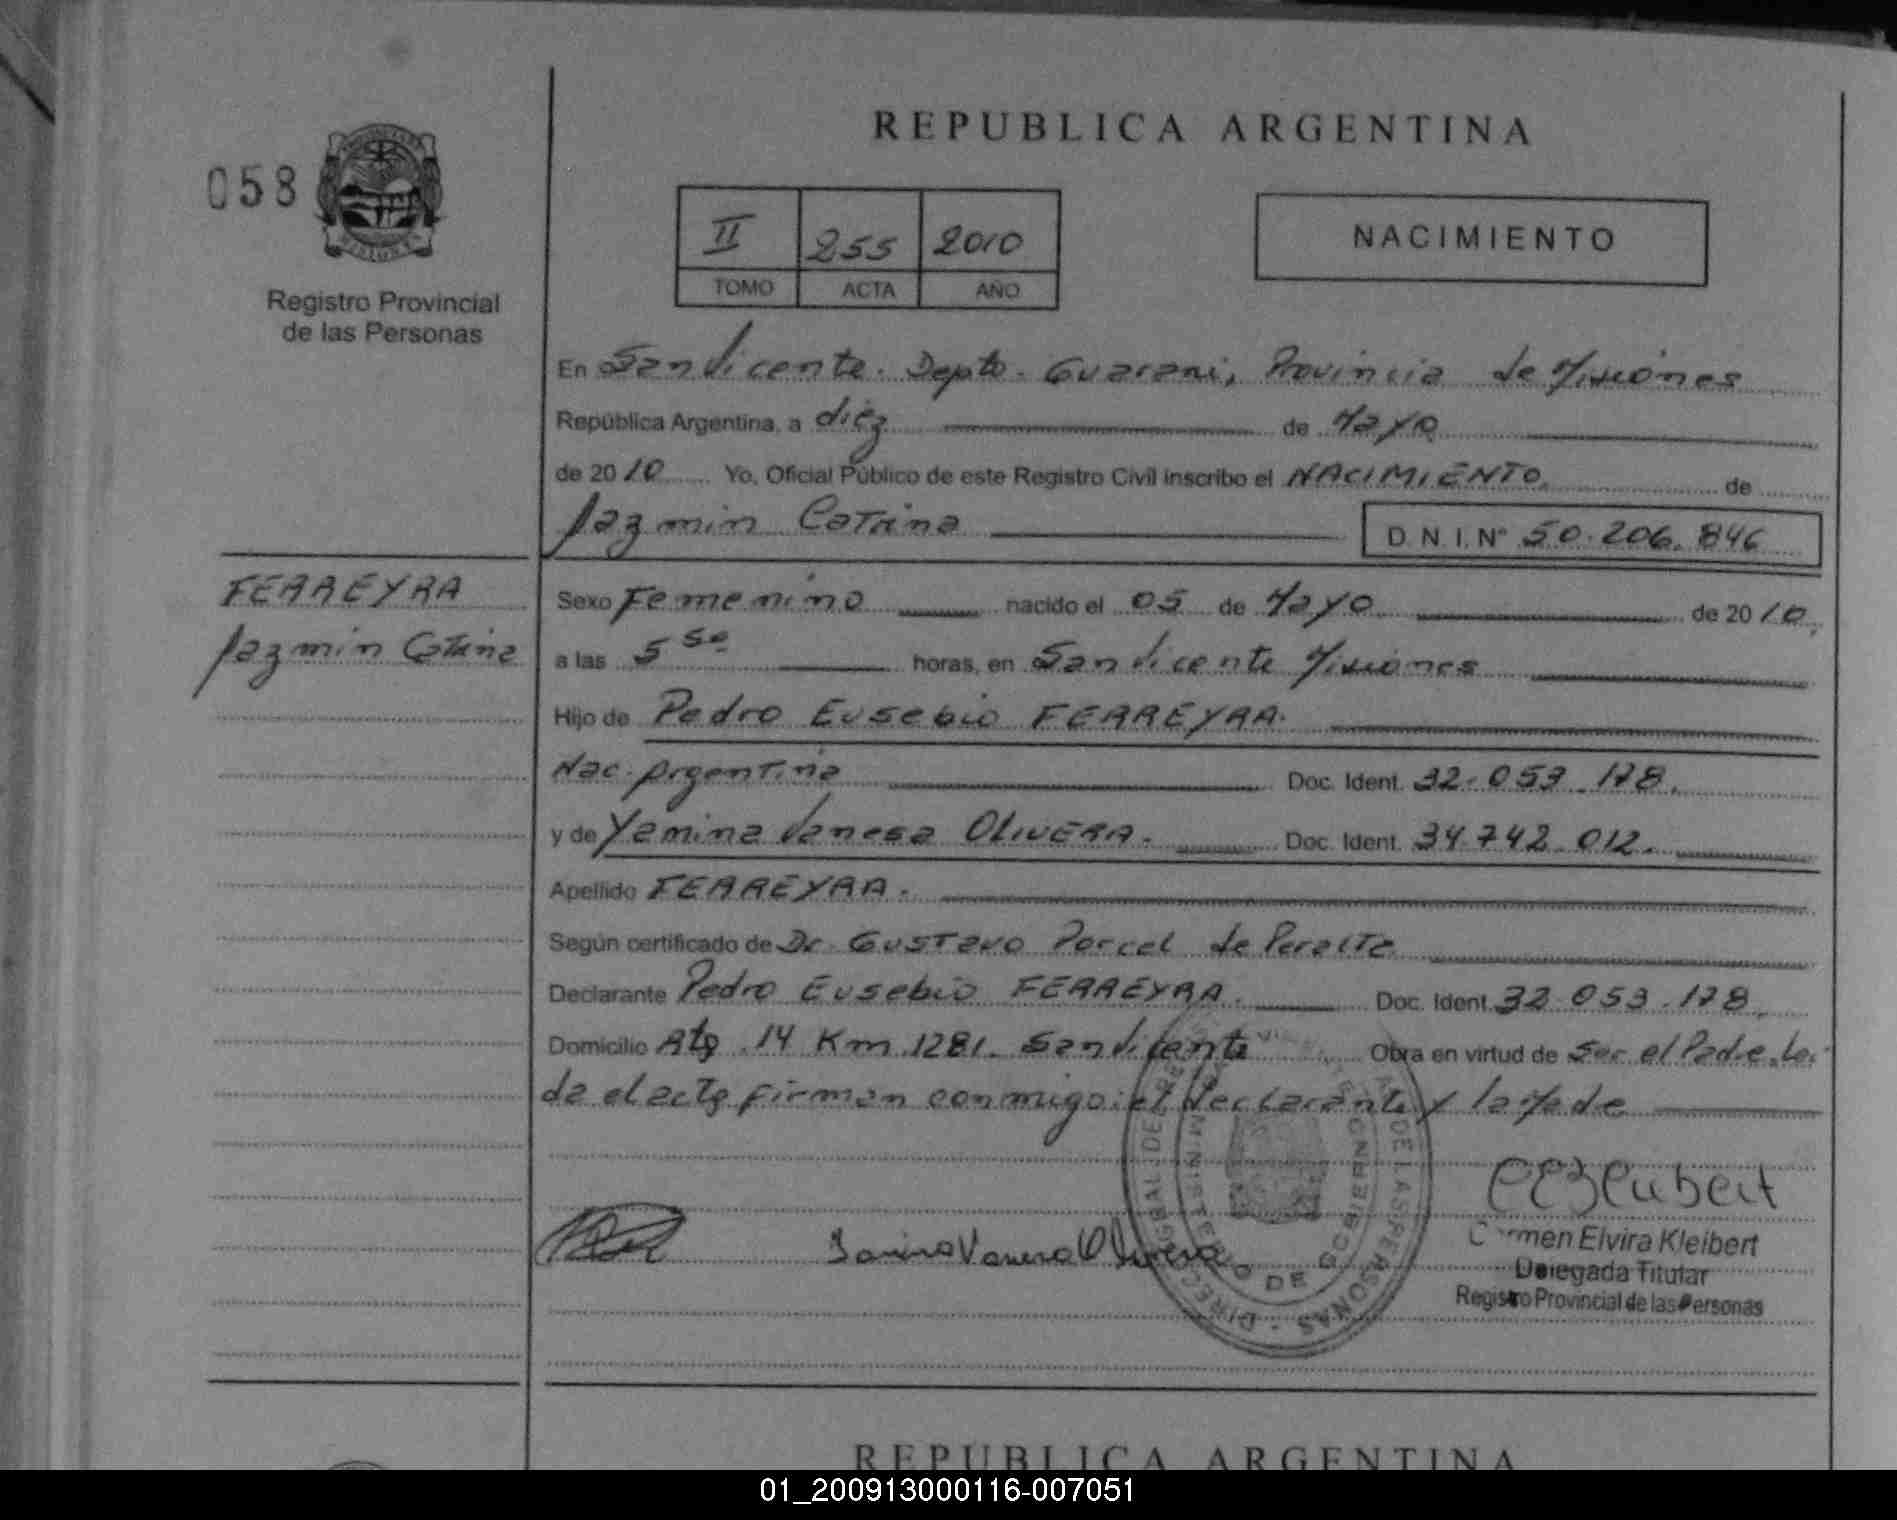 REPUBLICA ARGENTINA
058
II 255 2010
TOMO ACTA AÑO
NACIMIENTO
Registro Provincial
de las Personas
En San Vicente. Depto. Guarani, Provincia de Misiones
República Argentina, a diez de Mayo
de 2010 Yo, Oficial Público de este Registro Civil inscribo el NACIMIENTO de
Jazmin Catrina D.N.I. Nº 50.206.846
FERREYRA
Jazmin Catrina
Sexo Femenino nacido el 05 de Mayo de 2010
a las 5 50 horas, en San Vicente Misiones
Hijo de Pedro Eusebio FERREYRA.
Nac. Argentina Doc. Ident. 32.053.178.
y de Yamina Vanesa OLIVERA. Doc. Ident. 34.742.012.
Apellido FERREYRA.
Según certificado de Dr. Gustavo Porcel de Peralta
Declarante Pedro Eusebio FERREYRA. Doc. Ident. 32.053.178.
Domicilio Rta. 14 Km 1281. San Vicente Obra en virtud de ser el Padre. Lei
da el acta firman conmigo: el declarante y la Made
Carmen Elvira Kleibert
Delegada Titular
Registro Provincial de las Personas
MINISTERIO DE GOBIERNO
DE LAS PERSONAS
REPUBLICA ARGENTINA
01_200913000116-007051